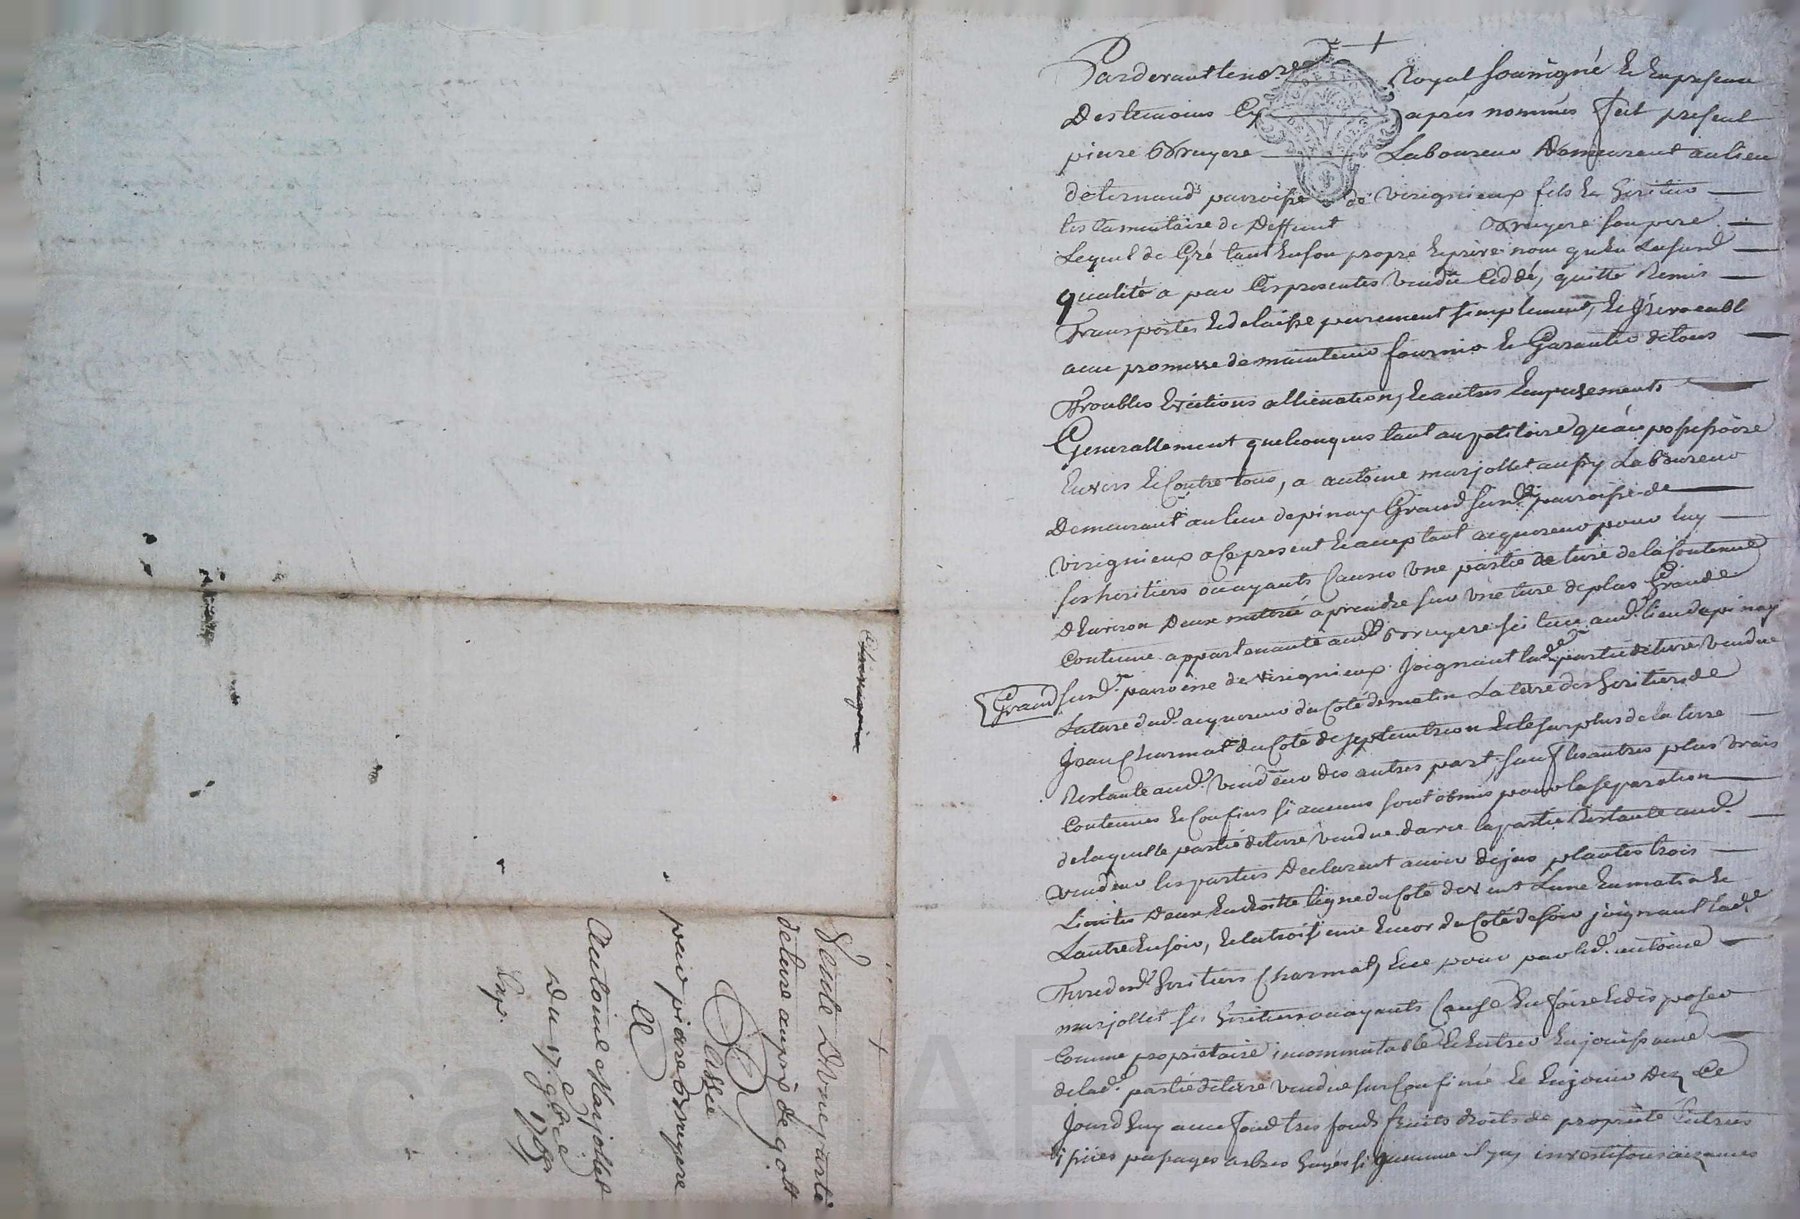 Pardevant le no.re Royal soussigné & en presence
Des temoins Cy apres nommés fut present
pierre Bruyere Laboureur Demeurant au lieu
de parroisse de virignieux fils & heritier
testamentaire de Deffunt Bruyere son pere
Lequel de Gré tant En son propre & privé nom qu'en Lasusd.
qualité a par Ces presentes vendu Ceddé, quitté Remis
Transportés & delaissé purement simplement, & Irrevocabl
avec promesse de maintenir fournir & Garantir de tous
Troubles Evictions allienation, & autres Empechements
Generallement quelconques tant au petitoire qu'au possessoire
Envers & Contre tous, a antoine marjollet aussy Laboureur
Demeurant au lieu depinay Grand susd. parroisse de
virignieux a Ce present & acceptant acquereur pour luy
ses heritiers ou ayants Cause une partie de terre de la Contenue
D'Environ Deux a prendre sur une terre de plus Grande
Contenue appartenante aud. Bruyere scituée aud. lieu depinay
Grand susd. parroisse de virignieux Joignant lad. partie de terre vendue
La terre dud. acquereur du Coté de matin La terre des heritiers de
Jean Charmat du Coté de septentrion & le surplus de la terre
Restante aud. vendeur des autres part, sauf les autres plus vrais
Contenues & Confins si aucuns sont obmis pour la separation
de laquelle partie de terre vendue davec la partie Restante aud.
vendeur les parties Declarent avoir dejas plantés trois
Limites Deux En droitte ligne du Coté de vent L'une En matin &
Lautre En soir, & la troisieme Encor du Coté de soir joignant lad.
Terre desd. heritiers Charmat, & ce pour par led. antoine
marjollet ses heritiers ou ayants Cause En faire & disposer
Comme proprietaire incommutable & Entrer En jouissance
de lad. partie de terre vendue sus Confinée & En jouir Dez Ce
Jourd'huy avec fond tres fonds fruits droits de proprieté Entrées
issües passages arbres hayes si quaucune il y a
Vente D'une partie
de terre au pré de gott
passée
par piere Bruyere
A
Antoine Marjollet
Du 17. 9bre
Exp.